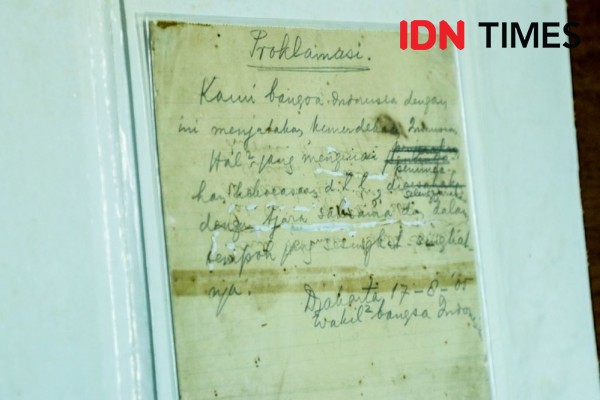 IDN TIMES
Proklamasi.
Kami bangsa Indonesia dengan
ini menjatakan kemerdekaan Indonesia
Hal² jang mengenai
peminda-
han kekoeasaan d.l.l.,
diselenggarakan
dengan tjara saksama dan dalam
tempoh jang
nja.
Djakarta 17-8-'05
Wakil² bangsa Indon